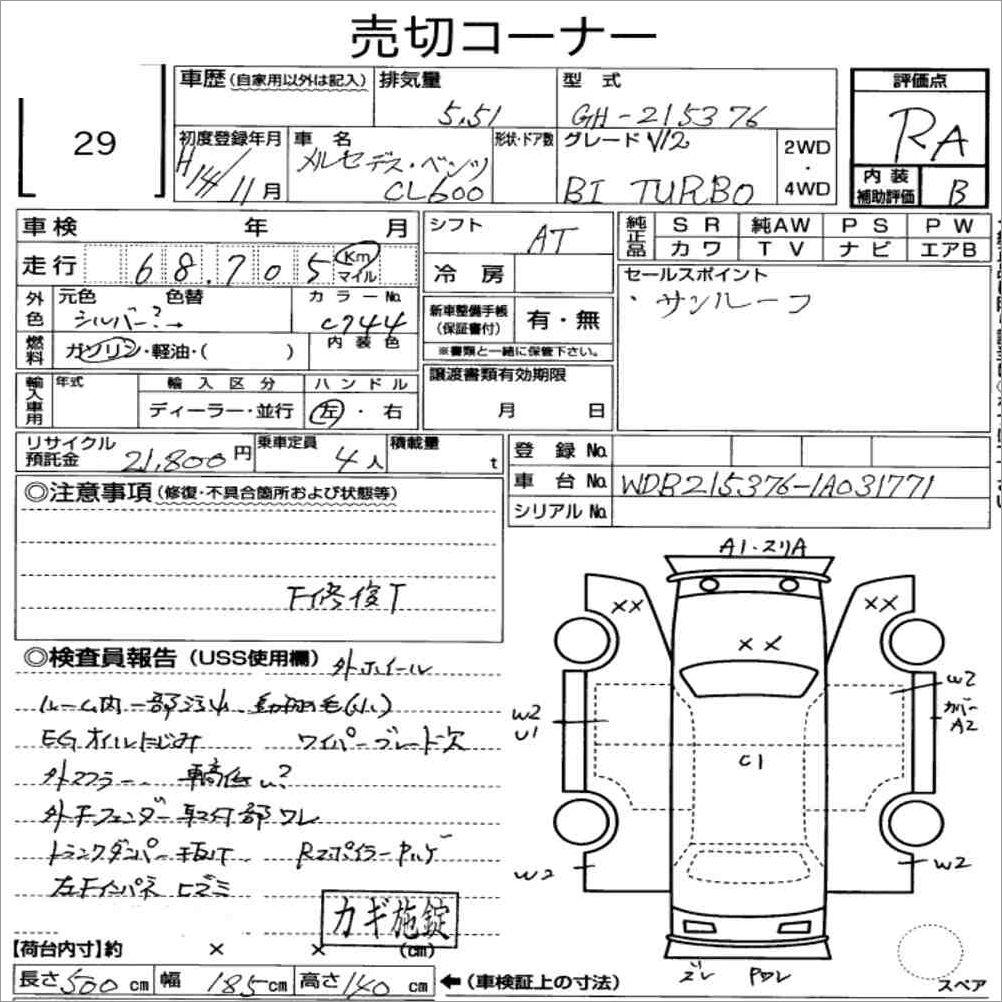 売切コーナー
29
車歴(自家用以外は記入)
排気量
5.51
型式
GH-215376
評価点
RA
初度登録年月
H14/11月
車名
メルセデス・ベンツ
CL600
形状・ドア数
グレード V12
BI TURBO
2WD
・
4WD
内装
補助評価
B
車検 年 月
走行 68.705 Km
マイル
外色
元色 色替
シルバー?→
カラーNo.
C744
燃料
ガソリン・軽油・( )
内装色
輸入車用
年式
輸入区分
ディーラー・並行
ハンドル
左・右
シフト
AT
冷房
新車整備手帳
(保証書付)
有・無
※書類と一緒に保管下さい。
譲渡書類有効期限
月 日
純正品
SR 純AW PS PW
カワ TV ナビ エアB
セールスポイント
・サンルーフ
リサイクル
預託金
21,800円
乗車定員
4人
積載量
t
登録No.
車台No. WDB215376-1A031771
シリアルNo.
◎注意事項(修復・不具合箇所および状態等)
F修復T
◎検査員報告(USS使用欄) 外ホイール
ルーム内一部汚れ 動物の毛(小)
EGオイルにじみ ワイパーブレード欠
外マフラー、車高低い?
外Fフェンダー取付部ワレ
トランクダンパー抜け Rスポイラー
左Fインパネ ヒズミ
カギ施錠
【荷台内寸】約 × × (cm)
長さ500cm 幅185cm 高さ140cm
←(車検証上の寸法)
A1・スリA
×× ××
××
W2
U1
W2
カバー
A2
C1
W2
W2
ズレ Pワレ
スペア